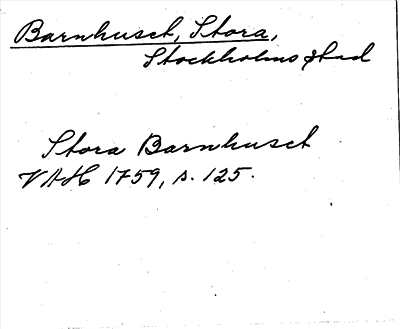 Barnhuset, Stora,
Stockholms stad
Stora Barnhuset
VAH 1759, s. 125.